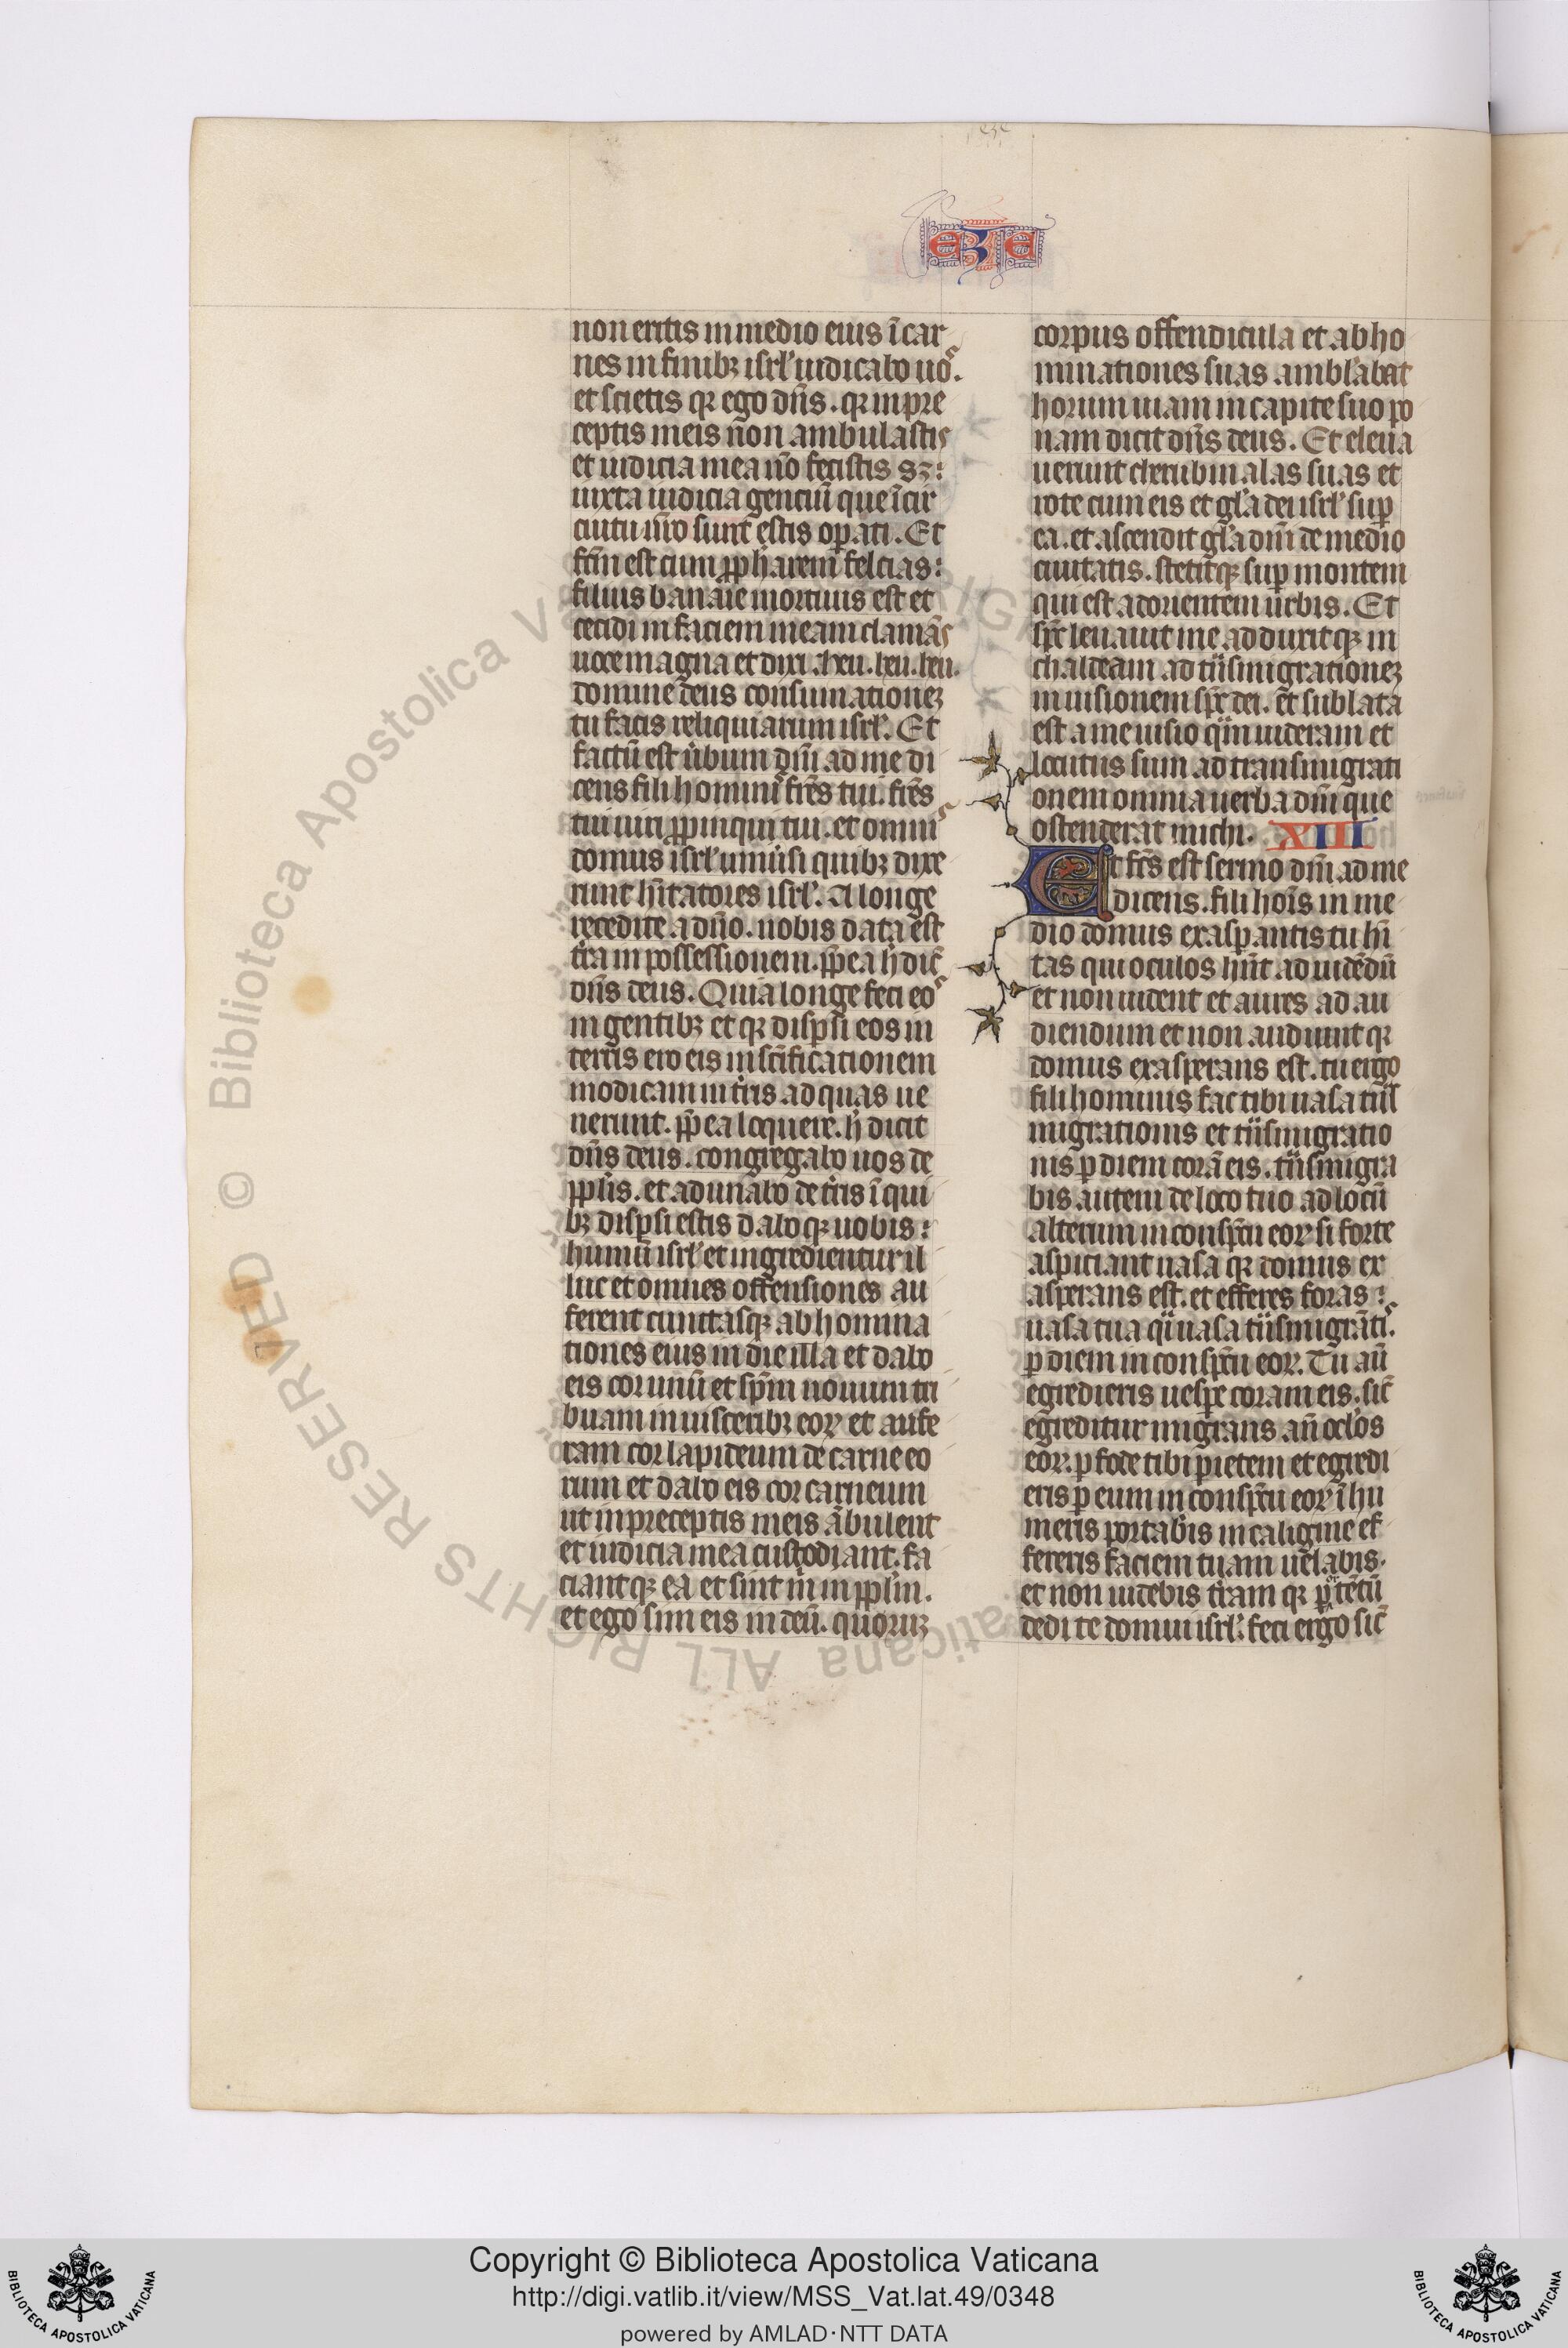 eze
non eritis in medio eius ī car
nes in finibꝫ isrl' iudicabo uos.
et scietis qꝛ ego dn̄s. qꝛ in pre
ceptis meis non ambulastis
et iudicia mea nō fecistis sꝫ:
iuxta iudicia gentiū que ī cir
cuitu ur̄o sunt estis oꝑati. Et
fc̄m est cum ꝓph'arem felcias:
filius banaie mortuus est et
cecidi in faciem meam clamās
uoce magna et dixi. heu. heu. heu.
domine deus consumationeꝫ
tu facis reliquiarum isrl'. Et
factū est u'bum dn̄i ad me di
cens fili hominis fr̄es tui. fr̄es
tui uiri ꝓpinqui tui. et omnis
domus isrl' uniu'si quibꝫ dixe
runt hīтatores isrl'. A longe
recedite a dn̄o. nobis data est
tr̄a in possessionem. ꝓp̄ea h' dic̄
dn̄s deus. Quia longe feci eos
in gentibꝫ et qꝛ disꝑsi eos in
terris ero eis in sc̄ificationem
modicam in tr̄is ad quas ue
nerunt. ꝓp̄ea loquere. h' dicit
dn̄s deus. congregabo uos de
ppl'is. et adunabo de tr̄is ī qui
bꝫ disꝑsi estis daboqꝫ uobis:
humū isrl' et ingredientur il
luc et omnes offensiones au
ferent cunctasqꝫ abhomina
tiones eius in die illa et dabo
eis cor unū et spm̄ nouum tri
buam in uisceribꝫ eoꝝ et aufe
ram cor lapideum de carne eo
rum et dabo eis cor carneum
ut in preceptis meis ābulent
et iudicia mea custodiant. fa
ciantqꝫ ea et sint m' in ppl'm.
et ego sim eis in deū. quoruꝫ
corpus offendicula et abho
minationes suas ambl'abat
horum uiam in capite suo po
nam dicit dn̄s deus. Et eleua
uerunt cherubin alas suas et
rote cum eis et gl'a dei isrl' suꝑ
ea. et ascendit gl'a dn̄i de medio
ciuitatis. stetitqꝫ suꝑ montem
qui est ad orientem urbis. Et
spc̄ leuauit me adduxitqꝫ in
chaldeam ad tn̄smigrationeꝫ
in uisionem spc̄ dei. et sublata
est a me uisio qm̄ uideram et
locutus sum ad transmigrati
onem omnia uerba dn̄i que
ostenderat michi. XIII
Et fc̄s est sermo dn̄i ad me
dicens. fili hoīs in me
dio domus exasꝑantis tu hī
tas qui oculos hn̄t ad uidēdū
et non uident et aures ad au
diendum et non audiunt qꝛ
domus exasperans est. tu ergo
fili hominis fac tibi uasa tn̄s
migrationis et tn̄smigratio
nis ꝑ diem corā eis. tn̄smigra
bis autem de loco tuo ad locū
alterum in conspc̄tu eoꝝ si forte
aspiciant uasa qꝛ domus ex
asperans est. et efferes foras:
uasa tua qi uasa tn̄smigrātis.
ꝑ diem in conspc̄tu eoꝝ. Tu aū
egredieris uesꝑe coram eis. sic̄
egreditur migrans. añ ocl'os
eoꝝ. ꝑfode tibi parietem et egredi
eris ꝑ eum in conspc̄tu eoꝝ ī hu
meris portab'is in caligine ef
fereris faciem tuam uelabis.
et non uidebis tr̄am qꝛ portētū
dedi te domui isrl'. feci ergo sic̄
Copyright © Biblioteca Apostolica Vaticana
http://digi.vatlib.it/view/MSS_Vat.lat.49/0348
powered by AMLAD·NTT DATA
BIBLIOTECA APOSTOLICA VATICANA
BIBLIOTECA APOSTOLICA VATICANA